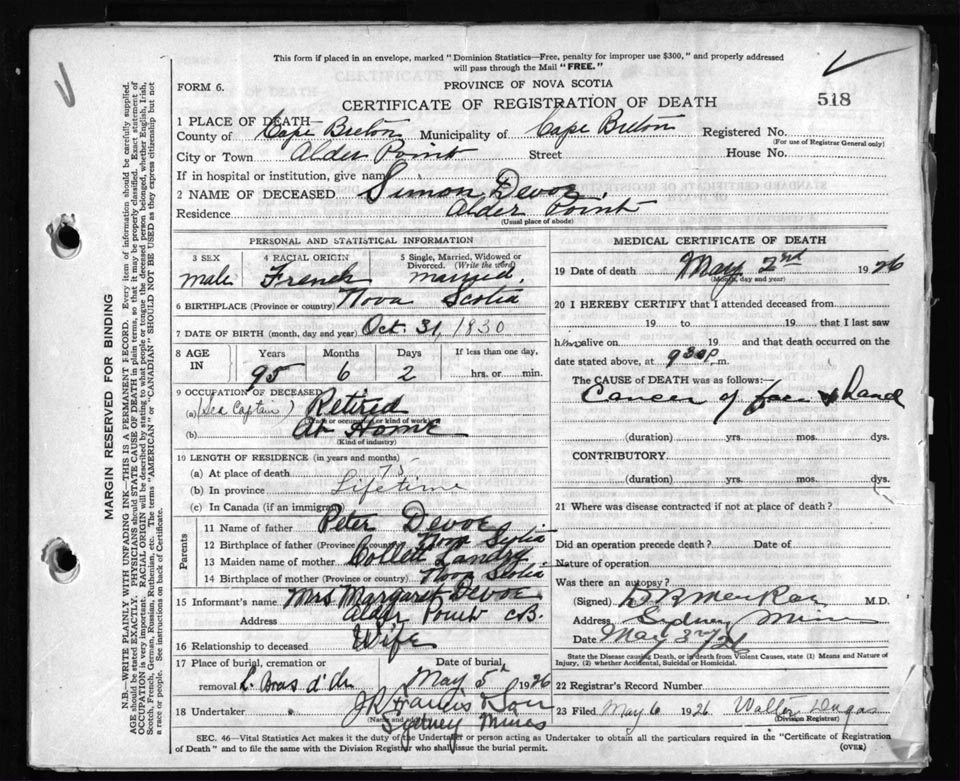 This form if placed in an envelope, marked "Dominion Statistics—Free, penalty for improper use $300," and properly addressed
will pass through the Mail "FREE."
FORM 6.
PROVINCE OF NOVA SCOTIA
CERTIFICATE OF REGISTRATION OF DEATH
518
1 PLACE OF DEATH—
County of Cape Breton Municipality of Cape Breton Registered No.
(For use of Registrar General only)
City or Town Alder Point Street House No.
If in hospital or institution, give name
2 NAME OF DECEASED Simon Devoe
Residence Alder Point
(Usual place of abode)
PERSONAL AND STATISTICAL INFORMATION
3 SEX 4 RACIAL ORIGIN 5 Single, Married, Widowed or Divorced. (Write the word)
male French married
6 BIRTHPLACE (Province or country) Nova Scotia
7 DATE OF BIRTH (month, day and year) Oct 31, 1830
8 AGE IN Years Months Days If less than one day,
95 6 2 hrs. or min.
9 OCCUPATION OF DECEASED
(a) (Sea Captain) Retired
(b) At Home
(Kind of industry)
10 LENGTH OF RESIDENCE (in years and months)
(a) At place of death 75
(b) In province Lifetime
(c) In Canada (if an immigrant)
Parents
11 Name of father Peter Devoe
12 Birthplace of father (Province or country) Nova Scotia
13 Maiden name of mother Landry
14 Birthplace of mother (Province or country) Nova Scotia
15 Informant's name Mrs Margaret Devoe
Address Alder Point CB.
16 Relationship to deceased Wife
17 Place of burial, cremation or Date of burial
removal L. Bras d'Or May 5th 1926
18 Undertaker J R Francis & Son
Sydney Mines
MEDICAL CERTIFICATE OF DEATH
19 Date of death May 2nd 1926
(Month, day and year)
20 I HEREBY CERTIFY that I attended deceased from
19 to 19 that I last saw
him alive on 19 and that death occurred on the
date stated above, at 930 P.m.
The CAUSE OF DEATH was as follows:—
Cancer of face & hand
(duration) yrs. mos. dys.
CONTRIBUTORY.
(duration) yrs. mos. dys.
21 Where was disease contracted if not at place of death?
Did an operation precede death? Date of
Nature of operation
Was there an autopsy?
(Signed) MacKay M.D.
Address Sydney Mines
Date May 3rd/26
State the Disease causing Death, or in death from Violent Causes, state (1) Means and Nature of
Injury, (2) whether Accidental, Suicidal or Homicidal.
22 Registrar's Record Number
23 Filed May 6 1926 Walter Dugas
(Division Registrar)
SEC. 46—Vital Statistics Act makes it the duty of the Undertaker or person acting as Undertaker to obtain all the particulars required in the "Certificate of Registration
of Death" and to file the same with the Division Registrar who shall issue the burial permit.
(OVER)
MARGIN RESERVED FOR BINDING
N.B.—WRITE PLAINLY WITH UNFADING INK—THIS IS A PERMANENT RECORD. Every item of information should be carefully supplied.
AGE should be stated EXACTLY. PHYSICIANS should STATE CAUSE OF DEATH in plain terms, so that it may be properly classified. Exact statement of
OCCUPATION is very important. RACIAL ORIGIN will be described by stating to what people or tongue the deceased person belonged, whether English, Irish,
Scotch, French, German, Russian, Ruthenian, etc. The terms "AMERICAN" or "CANADIAN" SHOULD NOT BE USED as they express citizenship but not
a race or people. See instructions on back of Certificate.